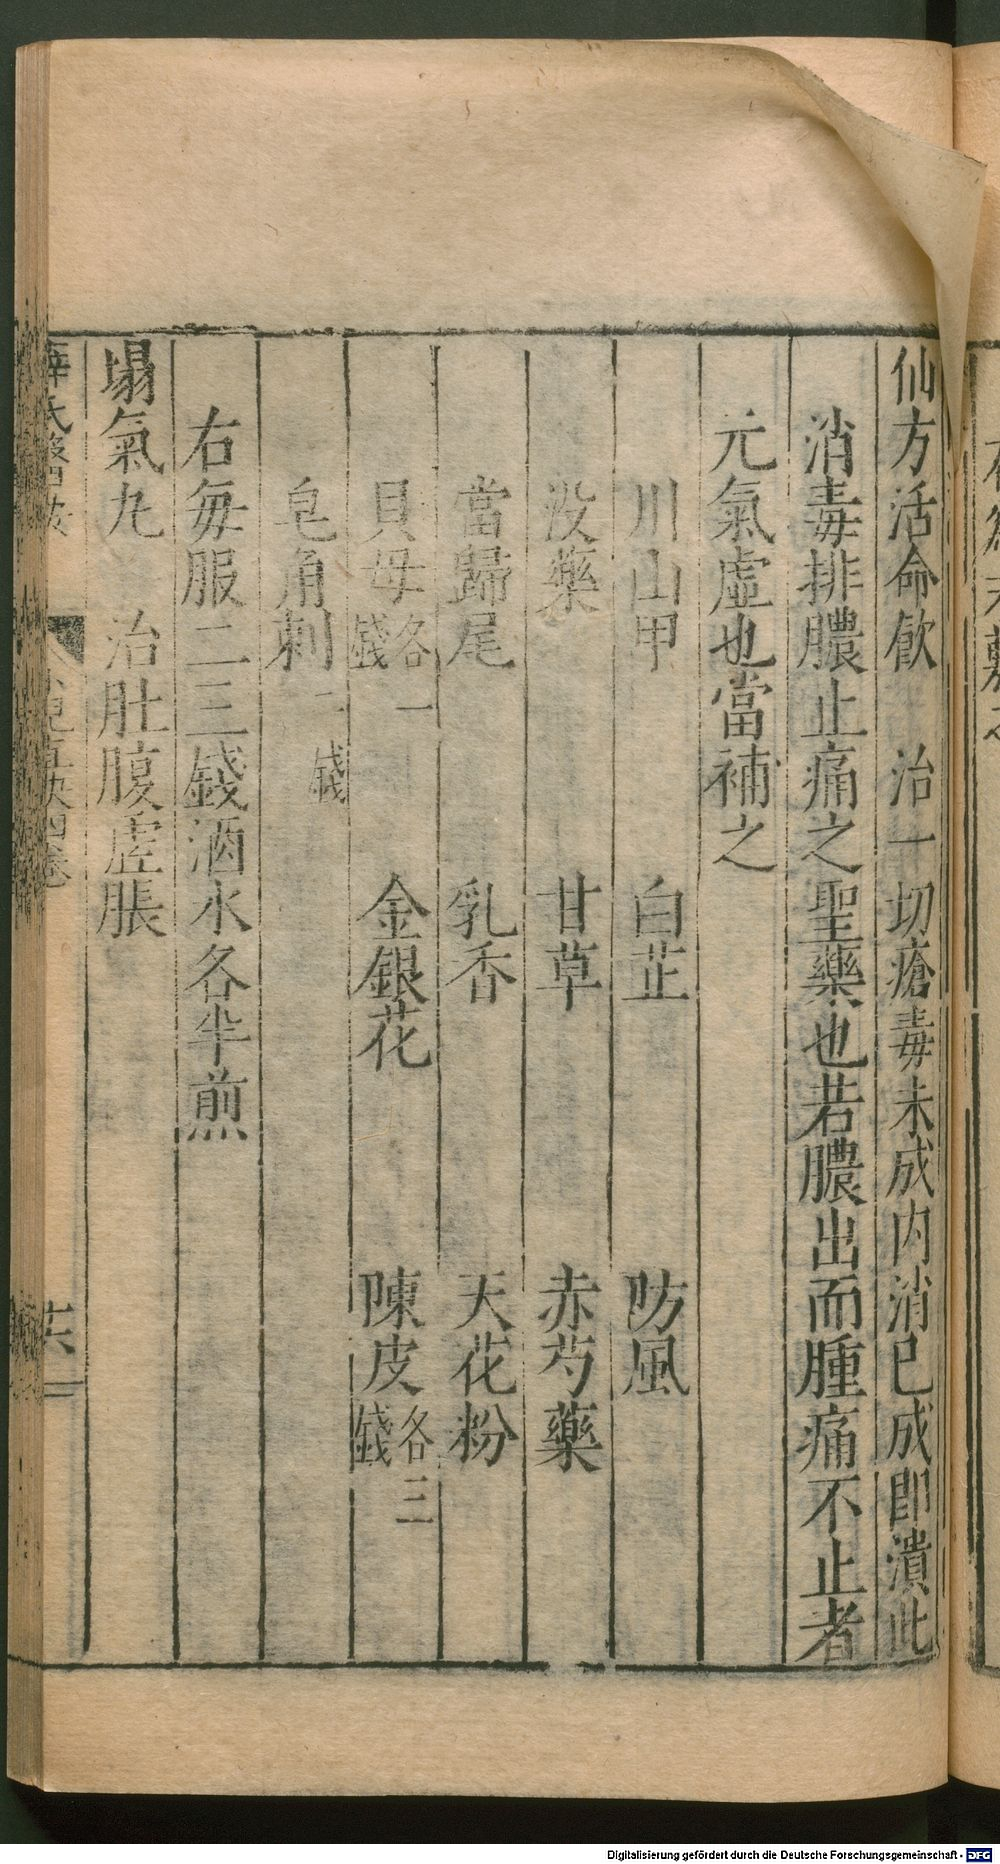 仙方活命飲　治一切瘡毒未成内消已成即潰此
消毒排膿止痛之聖藥也若膿出而腫痛不止者
元氣虛也當補之
川山甲　白芷　防風
没藥　甘草　赤芍藥
當歸尾　乳香　天花粉
貝母各一錢　金銀花　陳皮各三錢
皂角刺一錢
右每服二三錢酒水各半煎
塌氣丸　治肚腹虛脹
Digitalisierung gefördert durch die Deutsche Forschungsgemeinschaft - DFG